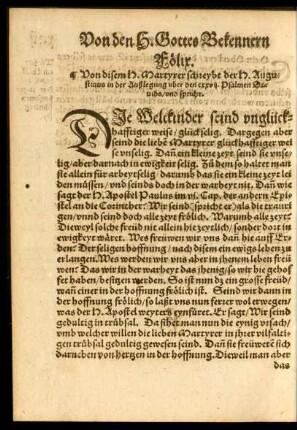 Von den H. Gottes Bekennern
Fölix.
¶ Von disem H. Martyrer schreybt der H. Augu-
stinus in der Außlegung vber den cxxvij. Psalmen Da-
uids/ vnd spricht.
DIe Weltkinder seind vnglück-
haffteiger weise/ glückselig. Dargegen aber
seind die liebẽ Martyrer glückhaffteiger wei
se vnselig. Dañ ein kleine zeyt seind sie vnse-
lig/ aber darnach in ewigkeit selig. Zů dem so haltet man
sie allein für arbeytselig/ darumb das sie ein kleine zeyt lei
den müssen/ vnd seinds doch in der warheyt nit. Dañ wie
sagt der H. Apostel Paulus im vj. Cap. der andern Epi-
stel an die Corinther: Wir seind (spricht er) als die trauri
gen/ vnnd seind doch alle zeyt frölich. Warumb alle zeyt?
Die weyl solche freud nit allein hie zeytlich/ sonder dort in
ewigkeyt wäret. Wes frewen wir vns dañ hie auff Er-
den? Der seligen hoffnung/ nach disem ein ewigs leben zů
erlangen. Wes werden wir vns aber in jhenem leben frew
en? Das wir in der warheyt das jhenig/ so wir hie gehof
fet haben/ besitzen werden. So ist nun dz ein grosse freud/
wañ einer in der hoffnung frölich ist. Seind wir dann in
der hoffnung frölich/ so laßt vns nun ferrer wol erwegen/
was der H. Apostel weyters eynfüret. Er sagt/ Wir seind
gedultig in trübsal. Da sihet man nun die eynig vrsach/
vmb welcher willen die lieben Martyrer in jhrer vilfalti-
gen trübsal gedultig gewesen seind. Dann sie frewtẽ sich
darneben von hertzen in der hoffnung. Die weil man aber
das